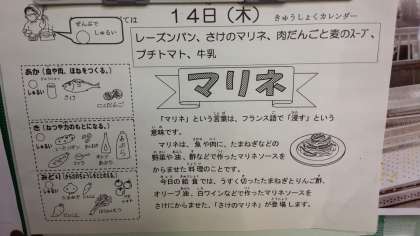 ぜんぶで
しゅるい
ては
14日(木)
きゅうしょくカレンダー
レーズンパン、さけのマリネ、肉だんごと麦のスープ、
プチトマト、牛乳
マリネ
あか(血や肉、ほねをつくる。)
しゅるい
さけ
にくだんご
き(ねつや力のもとになる。)
しゅるい
みどり
しゅるい
「マリネ」という言葉は、フランス語で「浸す」という
意味です。
マリネは、魚や肉に、たまねぎなどの
野菜や油、酢などで作ったマリネソースを
からませた料理のことです。
今日の給食では、うすく切ったたまねぎとりんご酢、
オリーブ油、白ワインなどで作ったマリネソースを
さけにからませた、「さけのマリネ」が登場します。